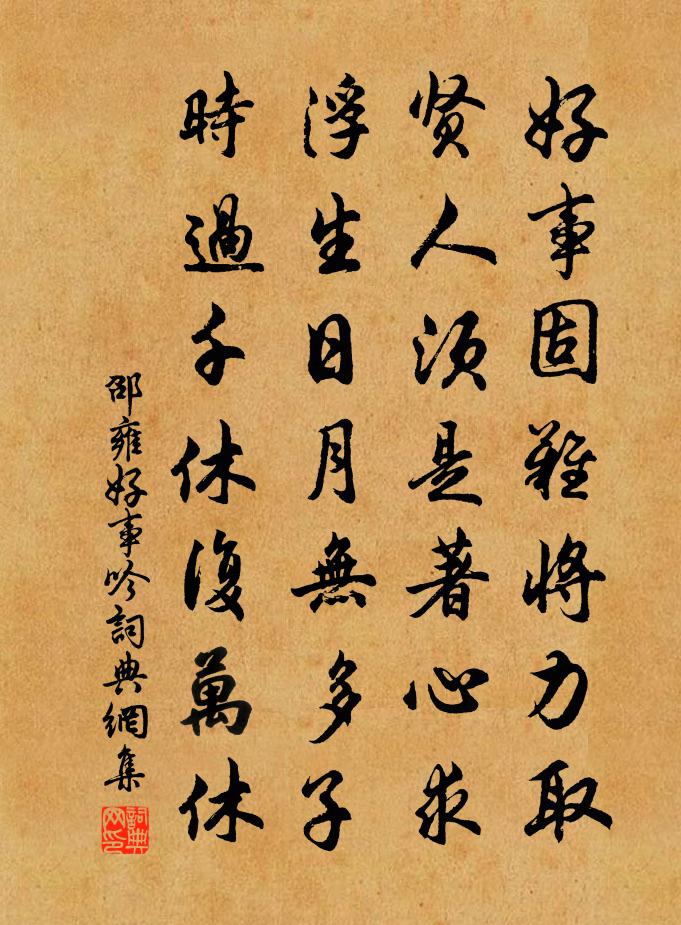 好事固難將力取
贤人须是著心求
浮生日月無多子
時過千休復萬休
邵雍好事吟詞典網集
詞典网印